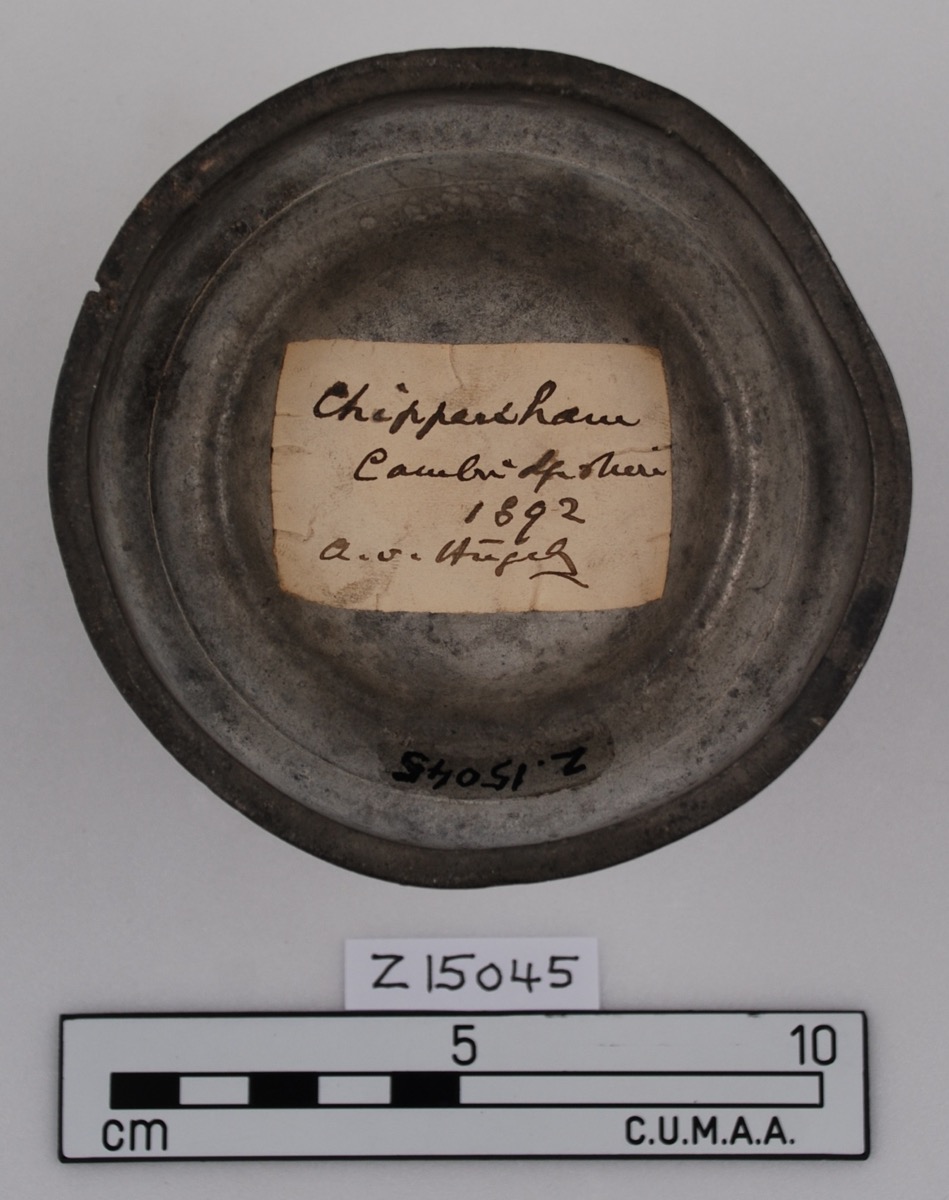 Chippenham
Cambridgeshire
1892
A. v. Hügel
Z.15045
Z 15045
5 10
cm C.U.M.A.A.